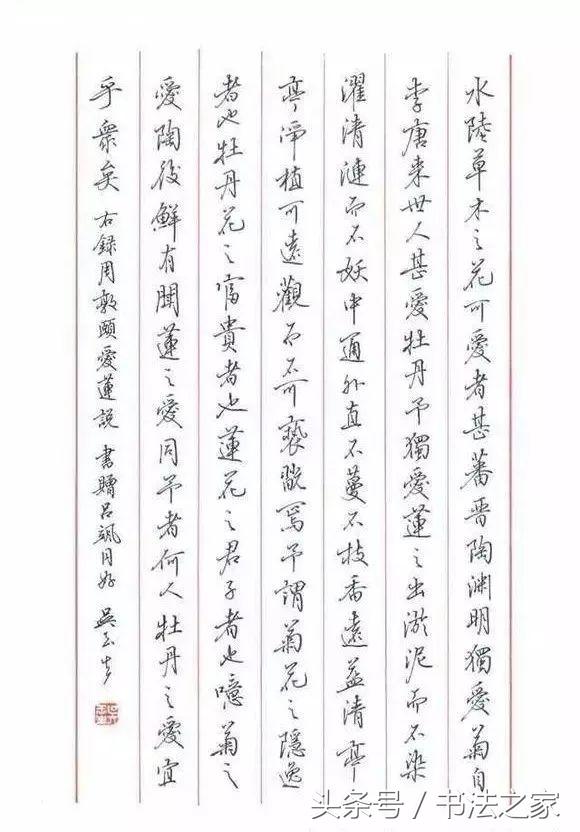 水陸草木之花可愛者甚蕃晋陶渊明獨愛菊自
李唐来世人甚愛牡丹予獨愛蓮之出淤泥而不染
濯清漣而不妖中通外直不蔓不枝香遠益清亭
亭淨植可遠觀而不可褻翫焉予謂菊花之隱逸
者也牡丹花之富貴者也蓮花之君子者也噫菊之
愛陶後鮮有聞蓮之愛同予者何人牡丹之愛宜
乎衆矣 右録周敦頤愛蓮説 書贈吕颯同好 吴玉生
头条号／书法之家